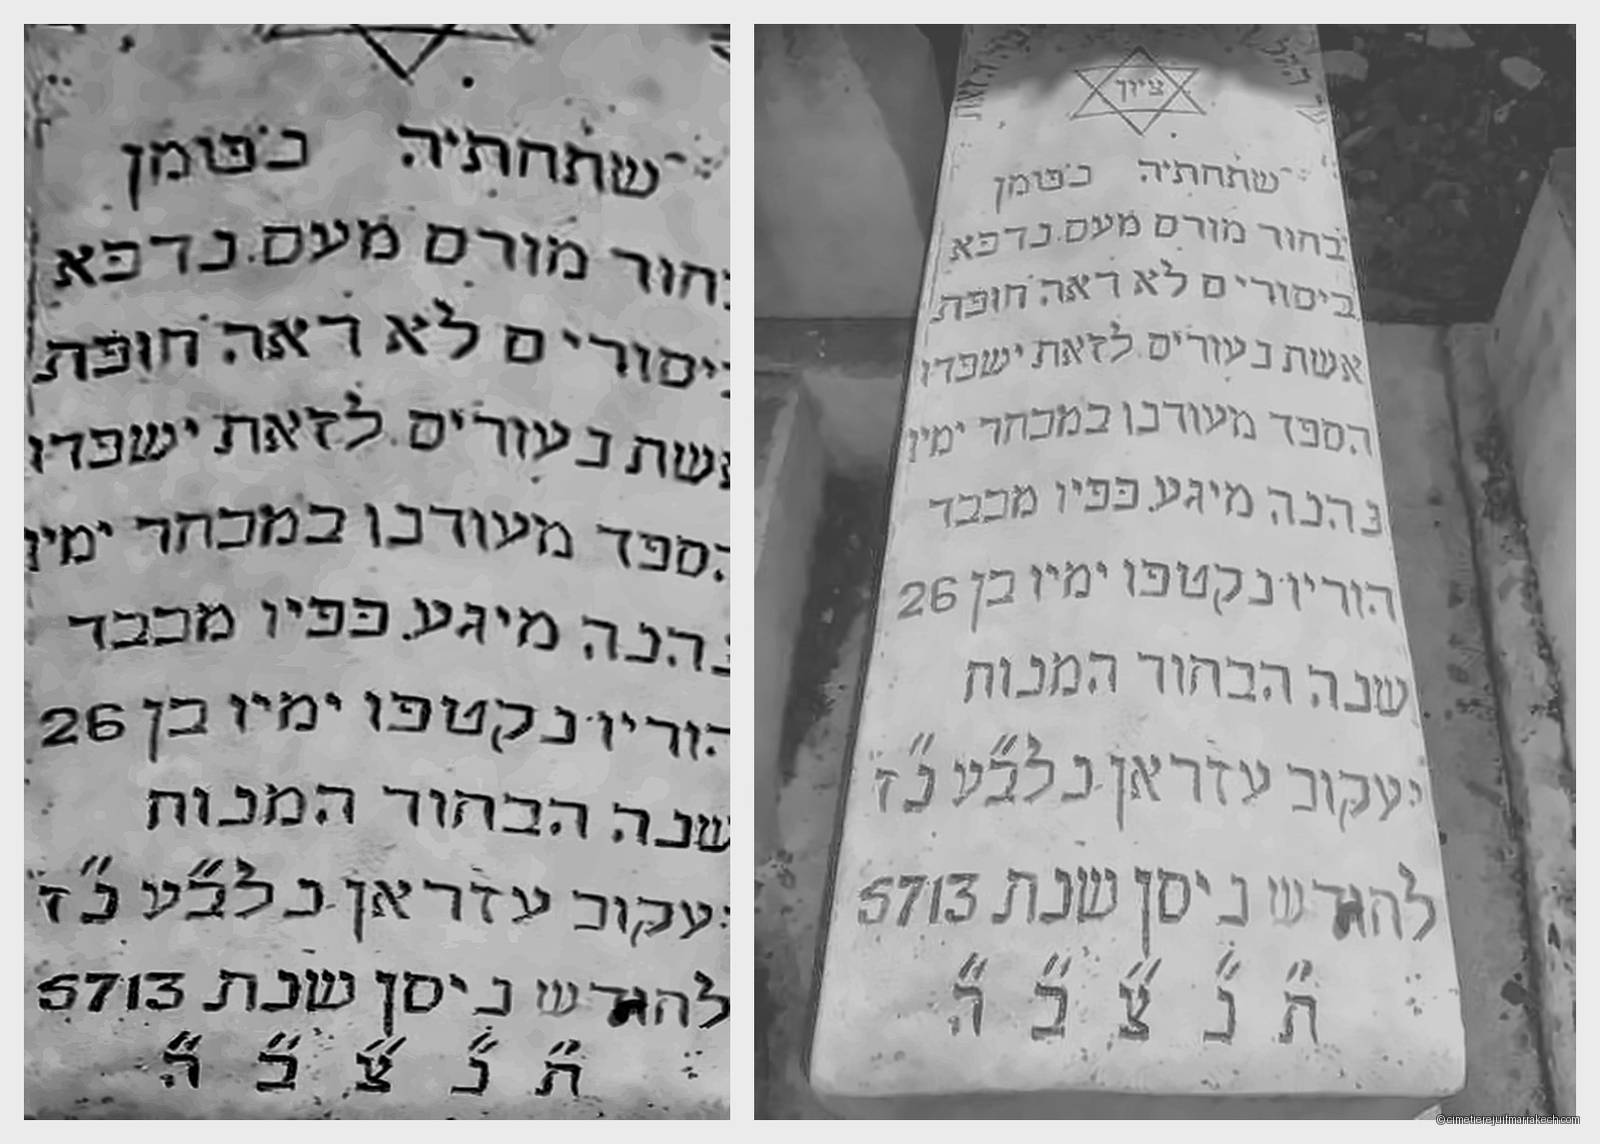 שתחתיה כפומן
מורם מעם נדכא
לא ראה חופת
נעורים לזאת ישפדו
מעודנו במבחר ימיו
מיגע כפיו מכבד
הוריו נקטפו ימיו בן 26
שנה הבחור המנוח
יעקוב עזראן נלב״ע כ״ז
ניסן שנת 5713
ת״ נ״ צ״ ב״ ה״
ציון
שתחתיה כפומן
בחור מורם מעם נדכא
ביסורים לא ראה חופת
אשת נעורים לזאת ישפדו
הספד מעודנו במבחר ימיו
נהנה מיגע כפיו מכבד
הוריו נקטפו ימיו בן 26
שנה הבחור המנוח
יעקוב עזראן נלב״ע כ״ז
ניסן שנת 5713
ת״ נ״ צ״ ב״ ה״
©cimetierejuifmarrakech.com